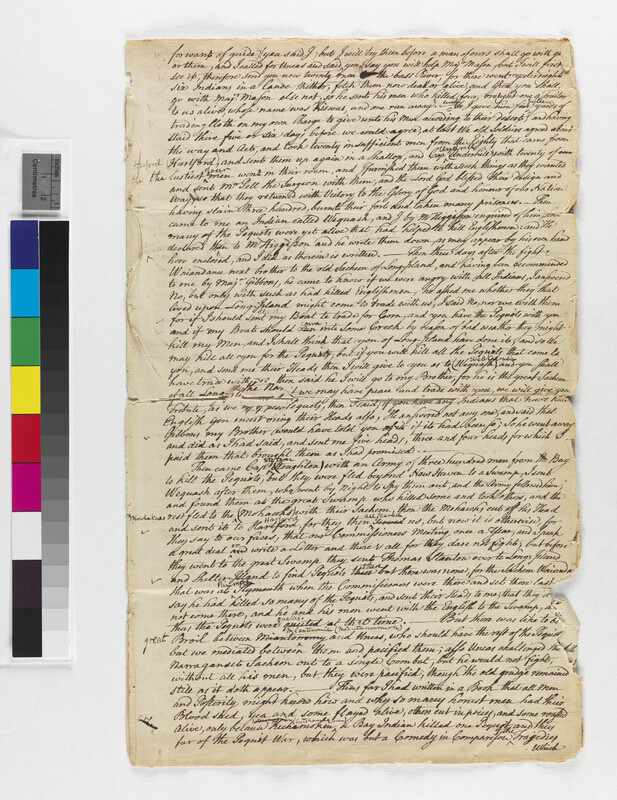 for want of guide; yea said I; but I will try them before a man of ours shall go with you
or them; and I called for Uncas and said, you say you will help Maj.r Mason, but I will first
see it, therefore send you now twenty men to the bass River, for there went yesternight
Six Indians in a Canoe thither, fetch them now dead or alive, and then you shall
go with Maj.r Mason else not, so he sent his men who killed four, brought one a traitor
to us alive, whose name was Kiswas, and one ran away; and I gave him fifteen yards of
trading cloth on my own Charge to give unto his Men according to their desert. And having
staid there five or six days before we could agree; at last we old Soldiers agreed about
the way and Act, and took twenty insufficient men from the Eighty that came from
Hartford, and sent them up again in a Shallop, and Cap.t Underhill with twenty of our
Hartford
the lustiest of our men went in their room, and I furnished them with such things as they wanted
and sent M.r Pell the Surgeon with them, and the Lord God blessed their design and
way, so that they returned with Victory to the Glory of God and honour of our Nation
having slain three hundred, burnt their fort and taken many prisoners. Then
came to me an Indian called Wequash, and I by M.r Higgisson inquired of him, how
many of the Pequots were yet alive that had helped to kill Englishmen; and He
declared them to M.r Higgison and he wrote them down, as may appear by his own hand
here enclosed, and I did as therein is written. Then three days after the fight
Waiandance next brother to the old Sachem of Long Island, and having been recommended
to me by Maj.r Gibbons, he came to know if we were angry with all Indians, I answered
No, but only with such as had killed Englishmen. He asked me whether they that
lived upon Long Island might come to trade with us, I said no, nor we with them
for if I should send my Boat to trade for Corn, and you have the Pequots with you
and if my Boat should run into some Creek by reason of bad weather they might
kill my Men, and I shall think that you of Long Island have done it, and so we
may kill all you for the Pequots, but if you will kill all the Pequots that come to
you, and send me their Heads then I will give to you as to Wequash, and you shall
have trade with us, then said he I will go to my Brother, for he is the great Sachem
of all Long Island, and if we may have peace and trade with you, we will give you
Tribute, as we did the Pequots, then I said, if you have any Indians that have killed
English you must bring their Heads also; He answered not any one, and said that
Gibbons my Brother, would have told you if it had been so; So he went away
and did as I had said, and sent me five heads, three and four heads for which I
paid them that brought them as I had promised.
Then came Cap.t Stoughton with an Army of three hundred men from the Bay
to kill the Pequots, but they were fled beyond New Haven to a swamp, I sent
Wequash after them, who went by Night to Spy them out, and the Army followed him,
and found them at the great Swamp who killed some and took others, and the
rest fled to the Mohawks with their Sachem, then the Mohawks cut off his Head
and sent it to Hartford, for they then feared us, but now it is otherwise, for
they say to our faces, that our Commissioners Meeting once a Year, and speak
a great deal and write a Letter and there's all for they dare not fight, but before
they went to the great Swamp they sent Thomas Stanton over to Long Island
and Shelter Island to find Pequots there but there was none for the Sachem Waiandance
that was at Plymouth when the Commissioners were there and set there last
say he had killed so many of the Pequots, and sent their Heads to me, that they durst
not come there, and he and his men went with the English to the Swamp, and
thus the Pequots were quelled at that time. But there was like to be a
great
Broil between Miantenomy and Uncas, who should have the rest of the Pequots
but we mediated between them and pacified them; also Uncas challenged the
Narraganset Sachem out to a single Combat, but he would not fight,
without all his men, but they were pacified, though the old grudge remained
still as it doth appear. Thus far I had written in a Book, that all men
and Posterity, might know how and why so many honest men had their
Blood shed, yea and some flayed alive, others cut in pieces, and some roasted
alive, only because Kichamokin, a Bay Indian killed one Pequot; and thus
far of the Pequot War, which was but a Comedy in Comparison of the Tragedies
Which